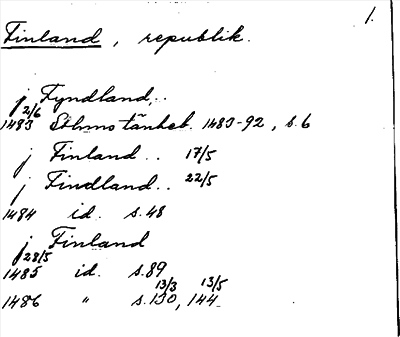 1.
Finland, republik.
j Fyndland,..
2/6
1483 Sthms tänkeb. 1483-92, s.6
j Finland .. 17/5
j Findland .. 22/5
1484 id. s.48
j Finland
28/5
1485 id. s.89
13/3 13/5
1486 " s.130, 144